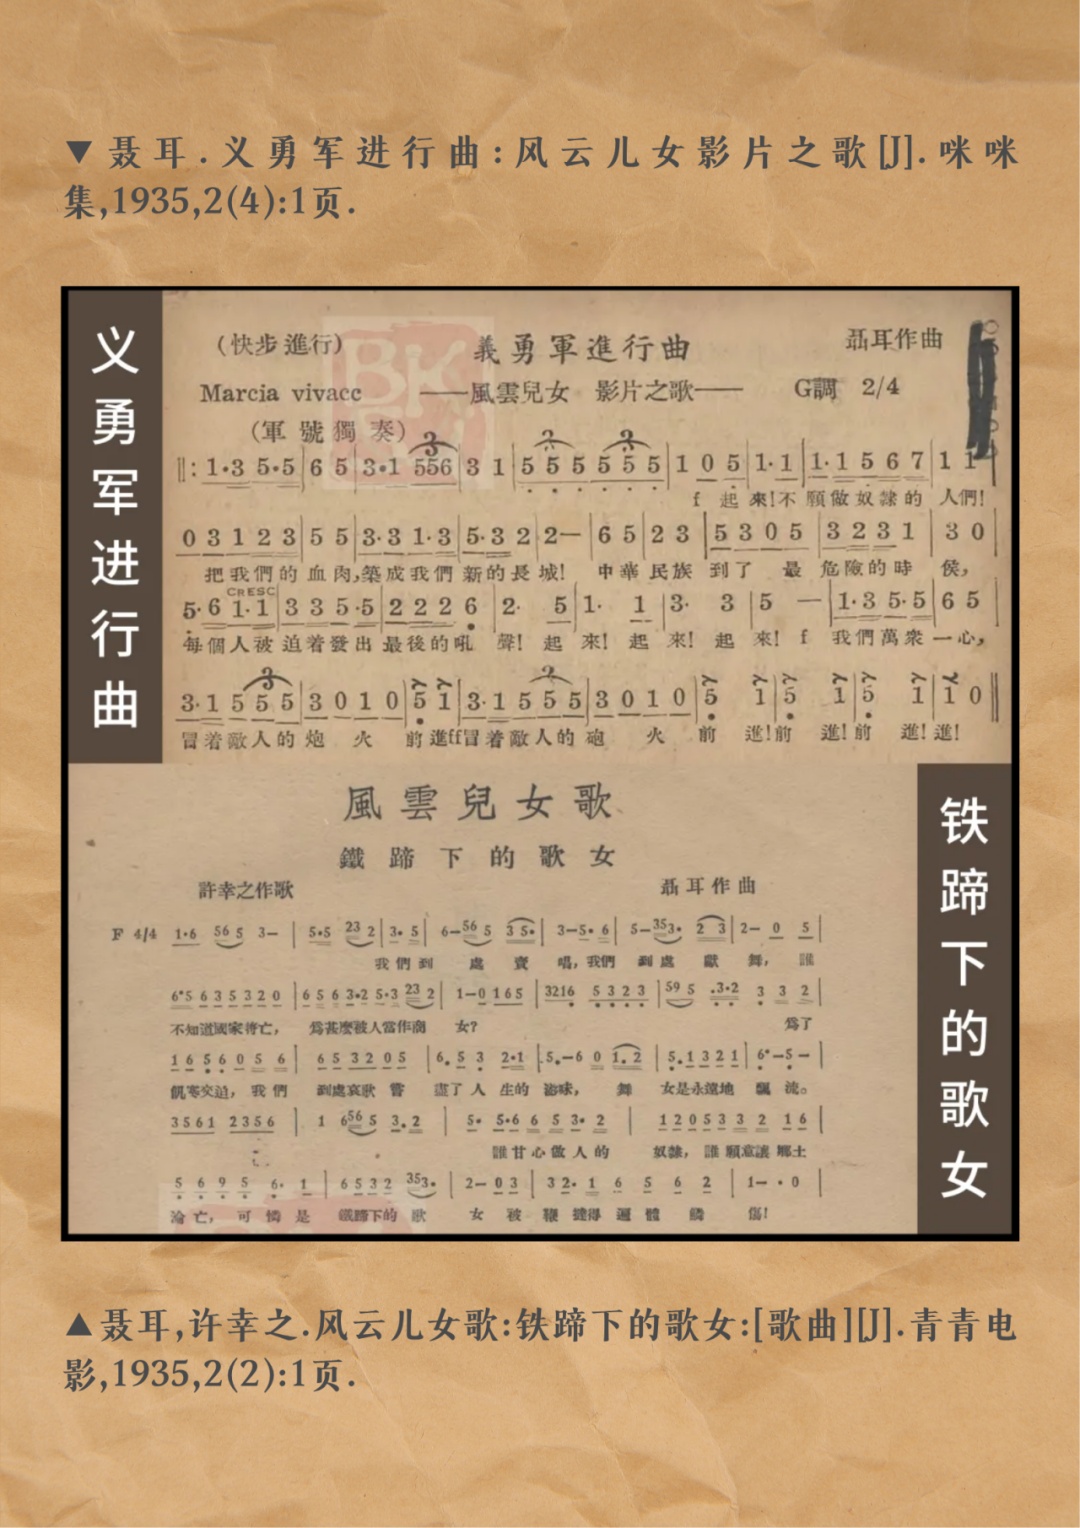 ▼聂耳.义勇军进行曲:风云儿女影片之歌[J].咪咪
集,1935,2(4):1页.
义勇军进行曲
(快步進行) 義勇軍進行曲 聶耳作曲
Marcia vivacc ——風雲兒女 影片之歌—— G調 2/4
(軍號獨奏)
‖: 1·3 5·5 | 6 5 | 3·1 556 | 3 1 | 5 5 5 5 5 5 | 1 0 5 | 1·1 | 1·1 5 6 7 | 1 1
f 起來!不願做奴隸的人們!
0 3 1 2 3 | 5 5 | 3·3 1·3 | 5·3 2 | 2— | 6 5 | 2 3 | 5 3 0 5 | 3 2 3 1 | 3 0
把我們的血肉,築成我們新的長城! 中華民族到了最危險的時侯,
CRESC
5·6 1·1 | 3 3 5·5 | 2 2 2 6 | 2· 5 | 1· 1 | 3· 3 | 5 — | 1·3 5·5 | 6 5
每個人被迫着發出最後的吼聲!起來!起來!起來! f 我們萬衆一心,
3·1 5 5 5 | 3 0 1 0 | 5 1 | 3·1 5 5 5 | 3 0 1 0 | 5 1 | 5 1 | 5 1 | 1 0 ‖
冒着敵人的炮火 前進ff冒着敵人的砲火 前進!前進!前進!進!
風雲兒女歌
鐵蹄下的歌女
許幸之作歌 聶耳作曲
F 4/4 1·6 56 5 3— | 5·5 23 2 | 3· 5 | 6—56 5 3 5· | 3—5· 6 | 5—353· 2 3 | 2— 0 5 |
我們到處賣唱,我們到處獻舞,誰
6·5 6 3 5 3 2 0 | 6 5 6 3·2 5·3 23 2 | 1—0 165 | 3216 5 3 2 3 | 59 5 .3·2 3 3 2 |
不知道國家將亡,爲甚麼被人當作商女? 爲了
1 6 5 6 0 5 6 | 6 5 3 2 0 5 | 6. 5 3 2·1 | 5.—6 0 1. 2 | 5. 1 3 2 1 | 6·—5— |
飢寒交迫,我們到處哀歌嘗盡了人生的滋味,舞女是永遠地飄流。
3561 2356 | 1 656 5 3. 2 | 5· 5·6 6 5 3· 2 | 1 2 0 5 3 3 2 1 6 |
誰甘心做人的奴隸,誰願意讓鄉土
5 6 9 5 6· 1 | 6 5 3 2 353· | 2— 0 3 | 3 2· 1 6 5 6 2 | 1— · 0 |
淪亡,可憐是鐵蹄下的歌女被鞭撻得遍體鱗傷!
铁蹄下的歌女
▲聂耳,许幸之.风云儿女歌:铁蹄下的歌女:[歌曲][J].青青电
影,1935,2(2):1页.